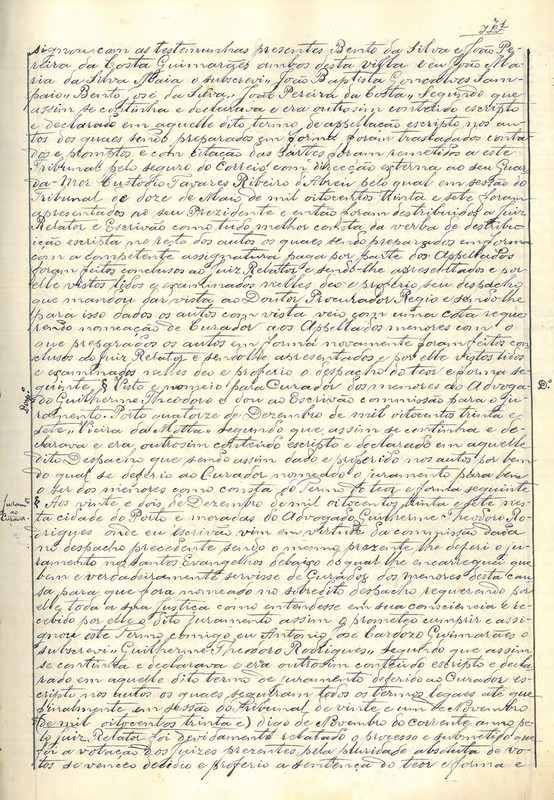 signou com as testemunhas presentes Bento da Silva e João Pe-
reira da Costa Guimarães ambos desta villa e eu João Ma-
ria da Silva Maia o subscrevi, João Baptista Goncalves Sam-
paio, Bento José da Silva, João Pereira da Costa, Segundo que
assim se continha e declarava e era outrosim contehudo escripto
e declarado em aquelle dito termo de appellação escripto nos au-
tos dos quaes sendo preparados em forma foram trasladados conta-
dos e promptos e com citação das partes foram remetidos a este
Tribunal pelo seguro do correio com direcção externa ao seu Guar-
da-Mor Custodio Tavares Ribeiro d'Abreu pelo qual em sessão do
Tribunal de doze de Maio de mil oitocentos trinta e sete foram
apresentados ao seu Prezidente e então foram destribuidos a Juiz
Relator e Escrivão como tudo melhor consta da verba de destribu-
ição escripta no rosto dos autos os quaes sendo preparados em forma
com a competente assignatura paga por parte dos Appellados
foram feitos conclusos ao Juiz Relator e sendo-lhe apresentados e por
elle vistos lidos e examinados nelles deo e proferio seu despacho
que mandou dar vista ao Doutor Procurador Regio e sendo-lhe
para isso dados os autos com vista veio com uma cota reque-
rendo nomeação de Curador aos Appellados menores com o
que preparados os autos em forma novamente foram feitos con-
clusos ao Juiz Relator e sendo-lhe apresentados e por elle vistos lidos
e examinados nelles deo e proferio o despacho do teor e forma se-
guinte, § Visto e nomeio para Curador dos menores ao Advoga-
do Guilherme Theodoro e dou ao Escrivão commissão para o ju-
ramento. Porto quatorze de Dezembro de mil oitocentos trinta e
sete, Vieira da Motta, segundo que assim se continha e de-
clarava e era outrosim contehudo escripto e declarado em aquelle
dito Despacho que sendo assim dado e proferido nos autos por bem
do qual se deferio ao Curador nomeado o juramento para bem
o ser dos menores como consta do Termo do teor e forma seguinte
§ Aos vinte e dois de Dezembro de mil oitocentos trinta e sete nes-
ta cidade do Porto e moradas do Advogado Guilherme Theodoro Ro-
driques onde eu Escrivão vim em virtude da commissão dada
no despacho precedente sendo o mesmo prezente lhe deferi o ju-
ramento nos Santos Evangelhos debaixo do qual lhe encarreguei que
bem e verdadeiramente servisse de Curador dos menores desta cau-
sa para que fora nomeado no sobredito despacho requerendo por
elles toda a sua justiça como entendesse em sua consciencia e re-
cebido por elle o dito juramento assim o prometeo cumprir e assi-
gnou este Termo comigo eu Antonio José Cardozo Guimarães o
subscrevi, Guilherme Theodoro Rodrigues, segundo que assim
se continha e declarava e era outrosim contehudo escripto e decla-
rado em aquelle dito termo de juramento deferido ao Curador es-
cripto nos autos os quaes seguiram todos os termos legaes até que
finalmente em sessão do Tribunal de vinte e um de Novembro
(de mil oitocentos trinta e) digo de Novembro do corrente anno pe-
lo juiz Relator foi devidamente relatado o processo e submetido que
foi a votação dos juizes prezentes, pela pluridade absoluta de vo-
tos se venceo decidio e proferio a sentença do teor e forma e
Desp.º
D.º